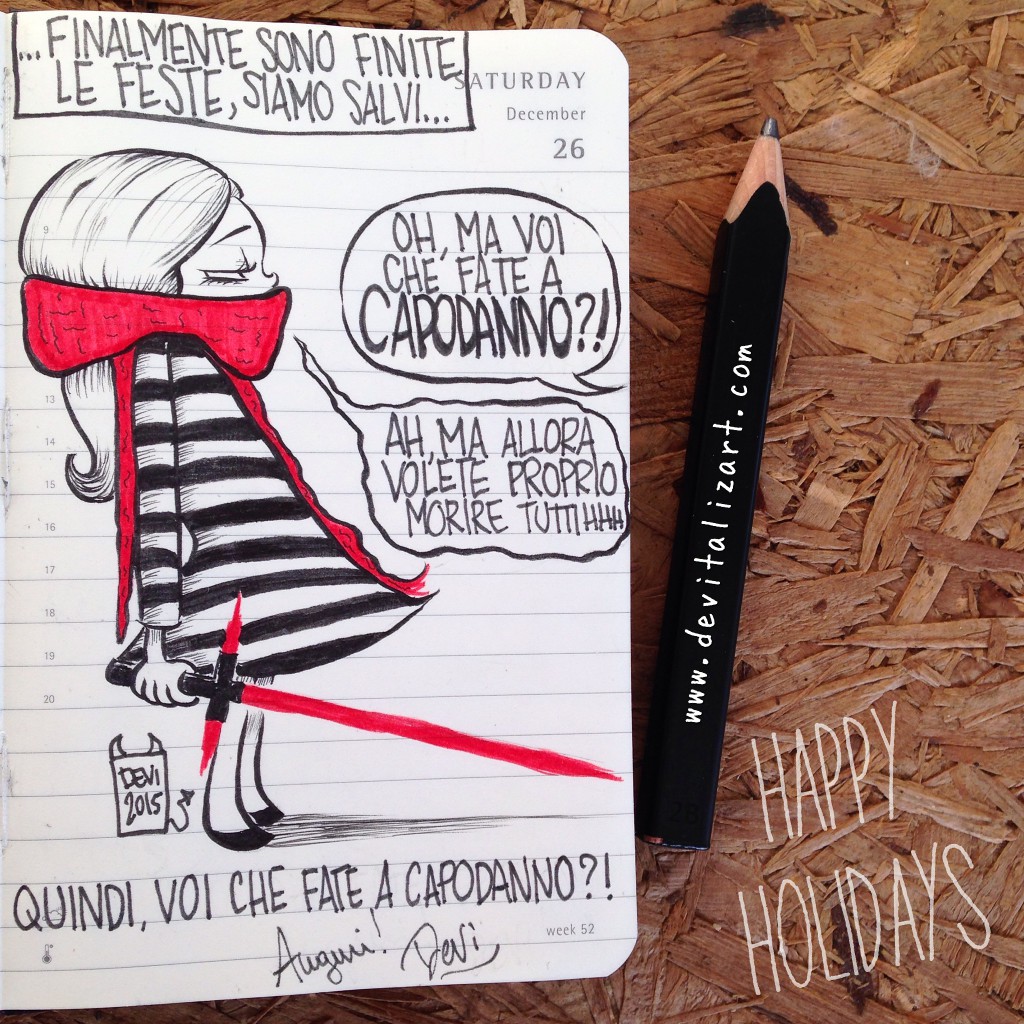 ...FINALMENTE SONO FINITE
LE FESTE, SIAMO SALVI...
SATURDAY
December
26
OH, MA VOI
CHE FATE A
CAPODANNO?!
AH, MA ALLORA
VOLETE PROPRIO
MORIRE TUTTIHHH
9
13
14
15
16
17
18
19
20
DEVI
2015
QUINDI, VOI CHE FATE A CAPODANNO?!
Auguri! Devi
week 52
www.devitalizart.com
2B
HAPPY
HOLIDAYS